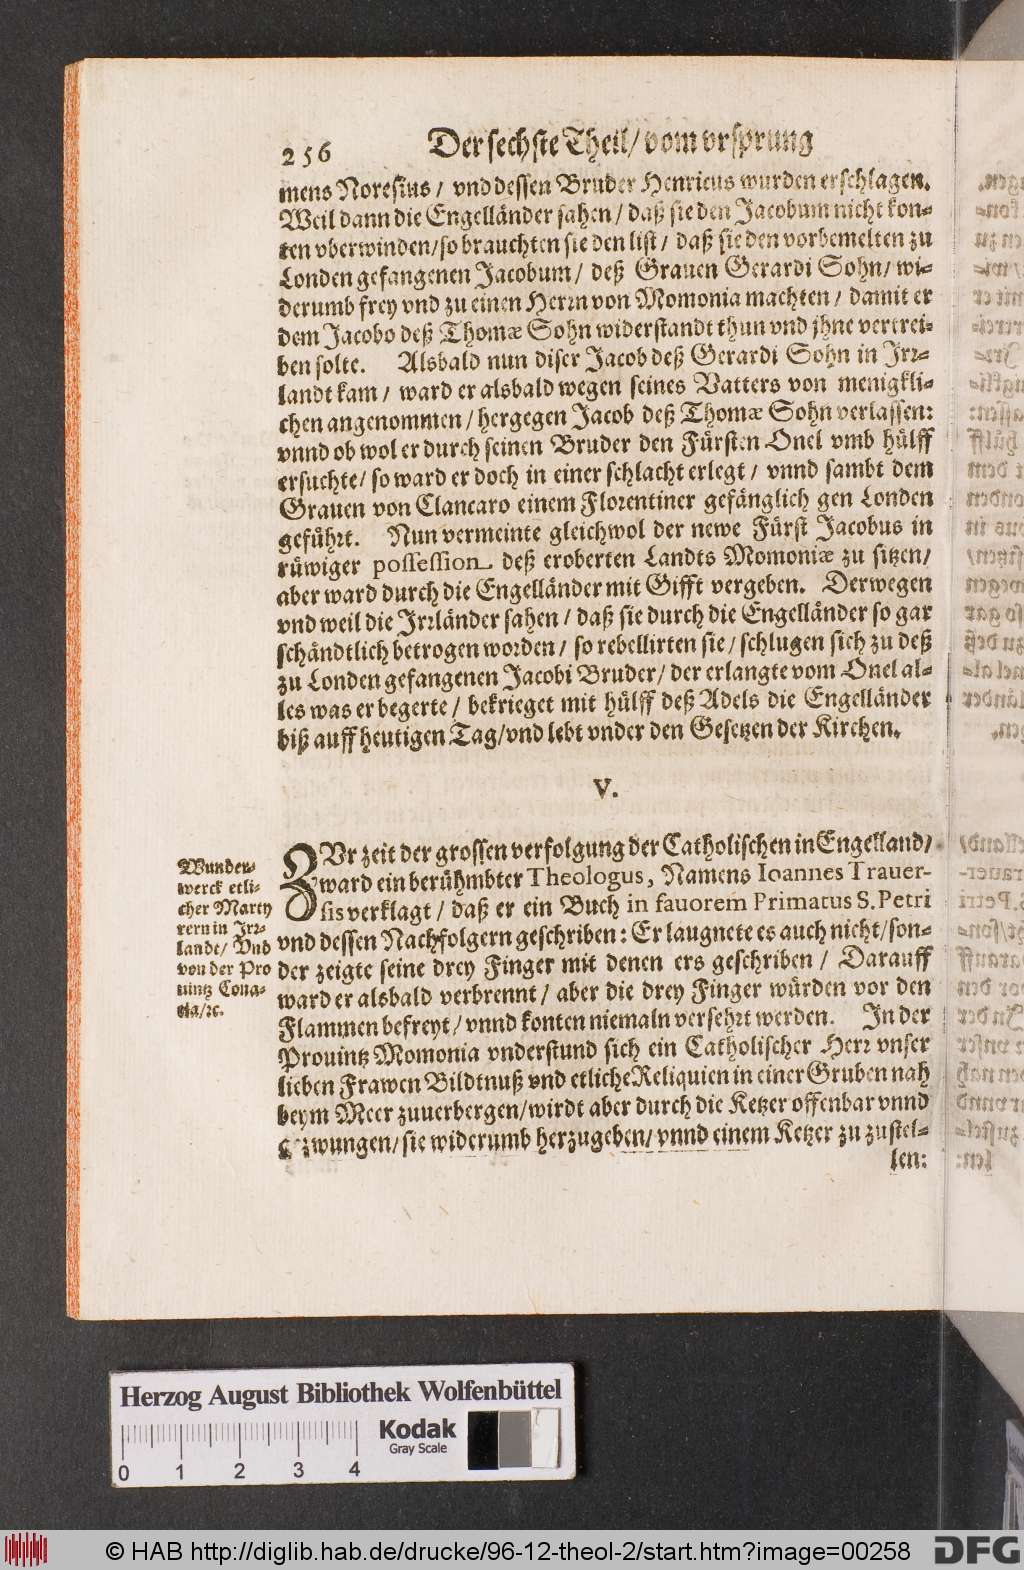 256 Der sechste Theil / vom vrsprung
mens Noresius / vnd dessen Bruder Henricus wurden erschlagen.
Weil dann die Engelländer sahen / daß sie den Jacobum nicht kon-
ten vberwinden / so brauchten sie den list / daß sie den vorbemelten zu
Londen gefangenen Jacobum / deß Grauen Gerardi Sohn / wi-
derumb frey vnd zu einen Herrn von Momonia machten / damit er
dem Jacobo deß Thomæ Sohn widerstandt thun vnd jhne vertrei-
ben solte. Alsbald nun diser Jacob deß Gerardi Sohn in Jrr-
landt kam / ward er alsbald wegen seines Vatters von menigkli-
chen angenommen / hergegen Jacob deß Thomæ Sohn verlassen:
vnnd ob wol er durch seinen Bruder den Fürsten Onel vmb hülff
ersuchte / so ward er doch in einer schlacht erlegt / vnnd sambt dem
Grauen von Clancaro einem Florentiner gefänglich gen Londen
geführt. Nun vermeinte gleichwol der newe Fürst Jacobus in
rüwiger possession deß eroberten Landts Momoniæ zu sitzen /
aber ward durch die Engelländer mit Gifft vergeben. Derwegen
vnd weil die Jrrländer sahen / daß sie durch die Engelländer so gar
schändtlich betrogen worden / so rebellirten sie / schlugen sich zu deß
zu Londen gefangenen Jacobi Bruder / der erlangte vom Onel al-
les was er begerte / bekrieget mit hülff deß Adels die Engelländer
biß auff heutigen Tag / vnd lebt vnder den Gesetzen der Kirchen.
V.
ZVr zeit der grossen verfolgung der Catholischen in Engelland /
ward ein berühmbter Theologus, Namens Ioannes Trauer-
sis verklagt / daß er ein Buch in fauorem Primatus S. Petri
vnd dessen Nachfolgern geschriben: Er laugnete es auch nicht / son-
der zeigte seine drey Finger mit denen ers geschriben / Darauff
ward er alsbald verbrennt / aber die drey Finger würden vor den
Flammen befreyt / vnnd konten niemaln versehrt werden. In der
Prouintz Momonia vnderstund sich ein Catholischer Herr vnser
lieben Frawen Bildtnuß vnd etliche Reliquien in einer Gruben nah
beym Meer zuuerbergen / wirdt aber durch die Ketzer offenbar vnnd
gezwungen / sie widerumb herzugeben / vnnd einem Ketzer zu zustel-
len:
Wunder-
werck etli-
cher Marty
rern in Jrr-
landt / Vnd
von der Pro
uintz Cona-
tia / ꝛc.
Herzog August Bibliothek Wolfenbüttel
Kodak
Gray Scale
0 1 2 3 4
© HAB http://diglib.hab.de/drucke/96-12-theol-2/start.htm?image=00258
DFG